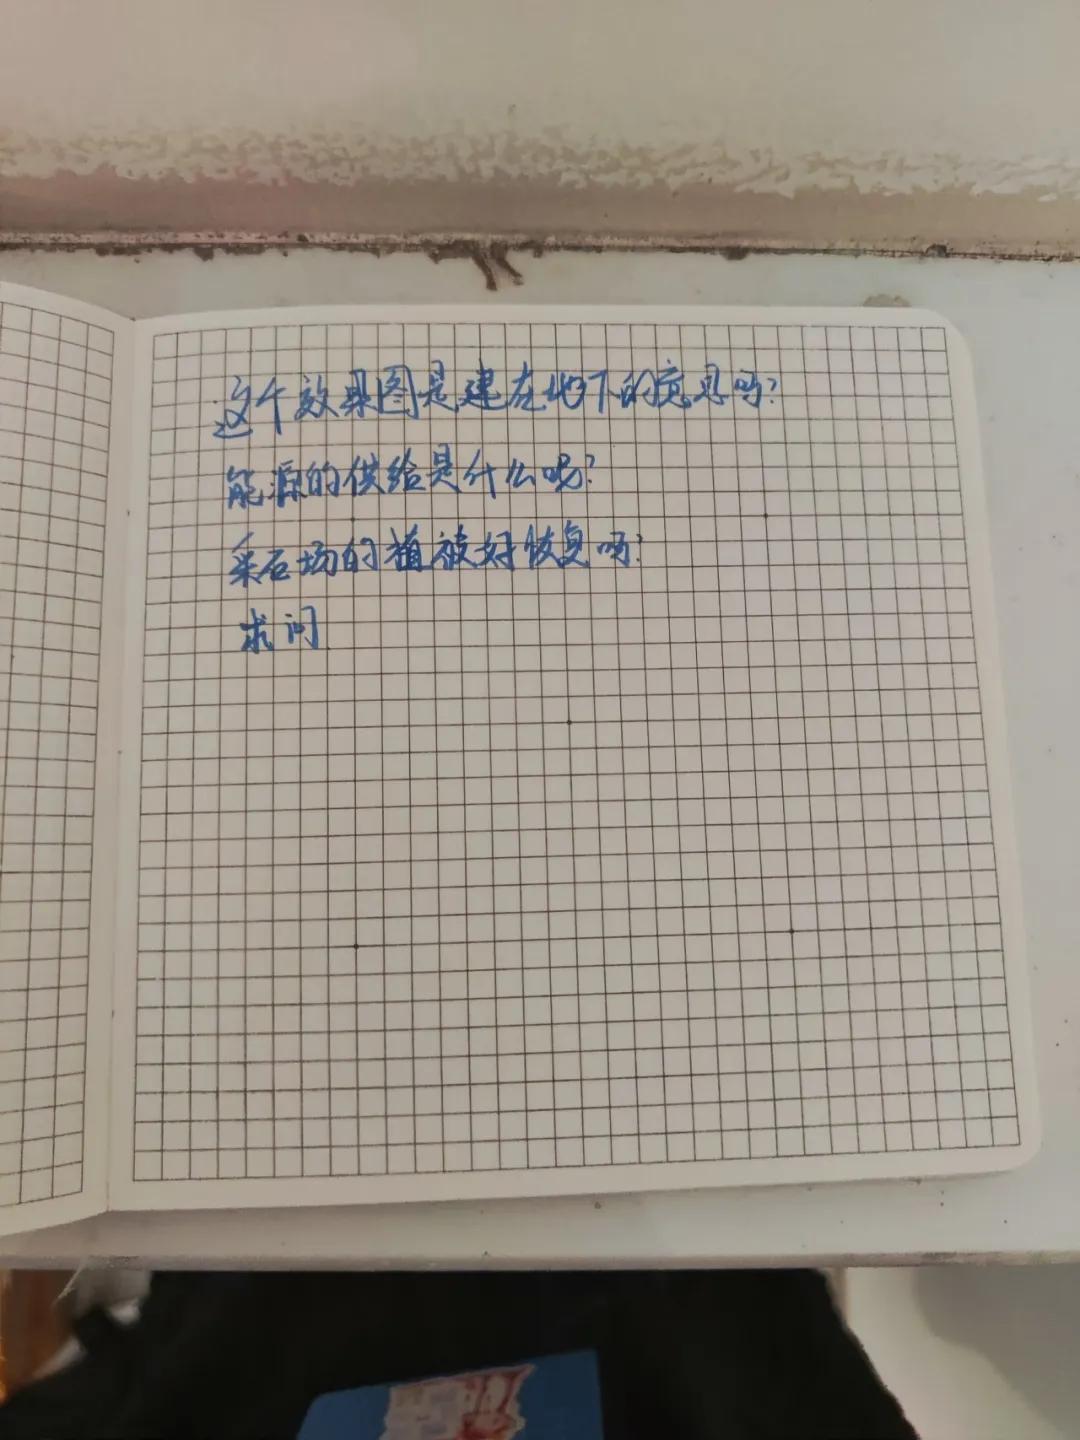 这个效果图是建在地下的意思吗?
能源的供给是什么呢?
采石场的植被好恢复吗?
求问